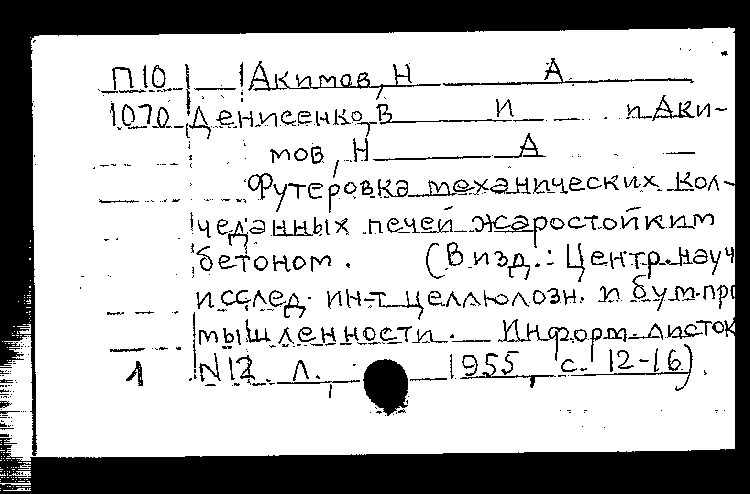 П10 Акимов, Н А
1070 Денисенко, В И и Аки-
мов, Н А
Футеровка механических кол-
чеданных печей жаростойким
бетоном. (В изд.: Центр. науч
исслед. ин-т целлюлозн. и бум. про
мышленности. Информ. листок
1 N12. Л., 1955, с. 12-16).